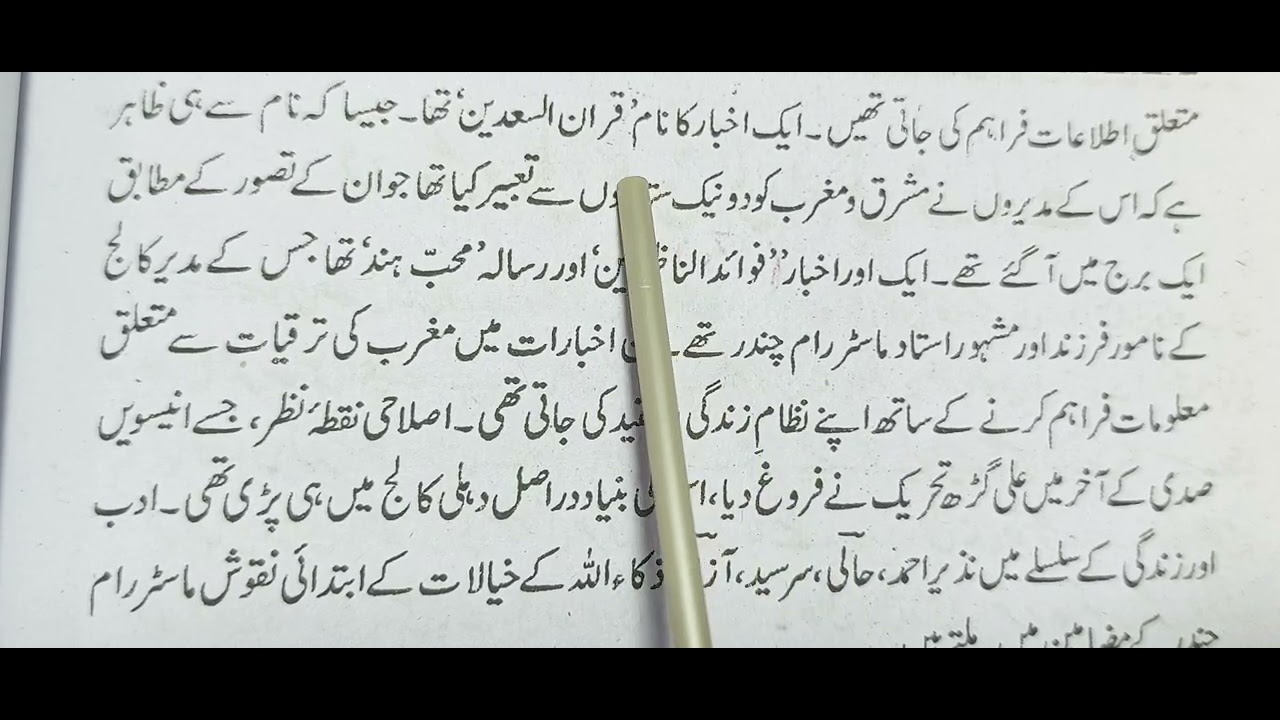 متعلق اطلاعات فراہم کی جاتی تھیں۔ ایک اخبار کا نام ’قران السعدین‘ تھا۔ جیسا کہ نام سے ہی ظاہر
ہے کہ اس کے مدیروں نے مشرق و مغرب کو دو نیک سے تعبیر کیا تھا جو ان کے تصور کے مطابق
ایک برج میں آ گئے تھے۔ ایک اور اخبار ’’فوائد اور رسالہ ’محبّ ہند‘ تھا جس کے مدیر کالج
کے نامور فرزند اور مشہور استاد ماسٹر رام چندر تھے۔ اخبارات میں مغرب کی ترقیات سے متعلق
معلومات فراہم کرنے کے ساتھ اپنے نظامِ زندگی کی جاتی تھی۔ اصلاحی نقطۂ نظر، جسے انیسویں
صدی کے آخر میں علی گڑھ تحریک نے فروغ دیا، بنیاد دراصل دہلی کالج میں ہی پڑی تھی۔ ادب
اور زندگی کے سلسلے میں نذیر احمد، حالی، سرسید، ذکاء اللہ کے خیالات کے ابتدائی نقوش ماسٹر رام